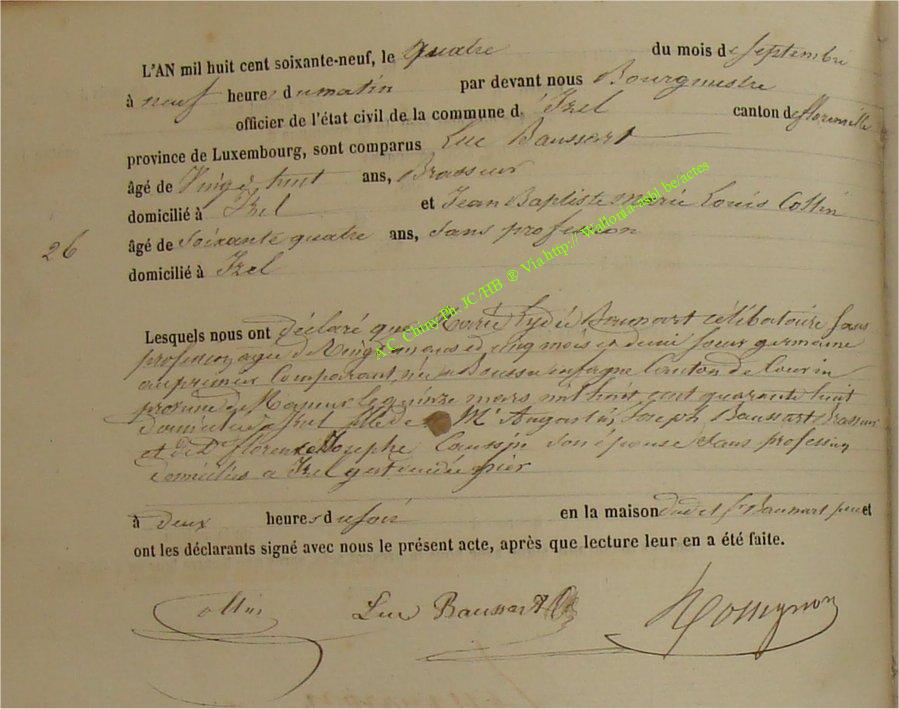 L'AN mil huit cent soixante-neuf, le quatre du mois de septembre
à neuf heures du matin par devant nous Bourgmestre
officier de l'état civil de la commune d' Izel canton de florenville
province de Luxembourg, sont comparus Luc Baussart
âgé de Vingt huit ans, Brasseur
domicilié à Izel et Jean Baptiste marie Louis Collin
26
âgé de Soixante quatre ans, Sans profession
domicilié à Izel
A.C. Chiny Ph. JC /HB ® Via http:// Wallonia-asbl.be/actes
Lesquels nous ont déclaré que Marie Lydie Baussart célibataire sans
profession agée de Vingt un ans cinq mois et demi soeur germaine
au premier Comparant née a Boussu en fagne Canton de Couvin
province de Namur le quinze mars mil huit cent quarante huit
domiciliée a Izel fille de Mr Augustin Joseph Baussart Brasseur
et de De florence Josephe Coussin son épouse Sans profession
domiciliés a Izel est décédée hier
à deux heures du soir en la maison dudit Sr Baussart père et
ont les déclarants signé avec nous le présent acte, après que lecture leur en a été faite.
Collin Luc Baussart Rossignon